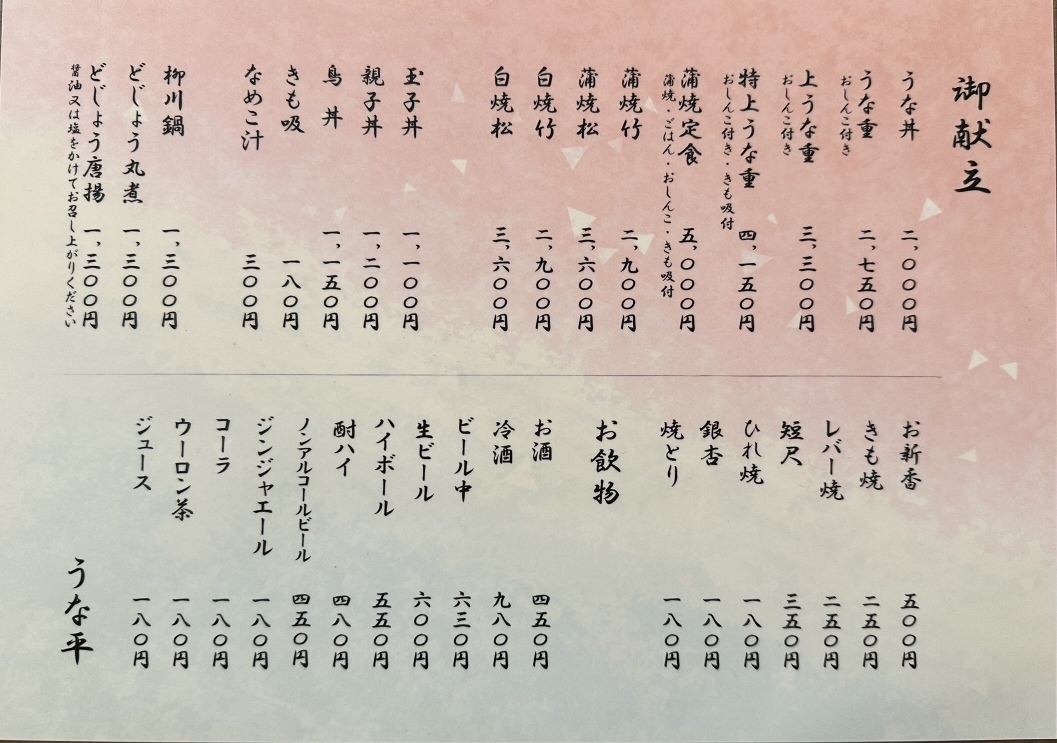 御献立
うな丼 二、〇〇〇円
うな重 二、七五〇円
おしんこ付き
上うな重 三、三〇〇円
おしんこ付き
特上うな重 四、一五〇円
おしんこ付き・きも吸付
蒲焼定食 五、〇〇〇円
蒲焼・ごはん・おしんこ・きも吸付
蒲焼竹 二、九〇〇円
蒲焼松 三、六〇〇円
白焼竹 二、九〇〇円
白焼松 三、六〇〇円
玉子丼 一、一〇〇円
親子丼 一、二〇〇円
鳥丼 一、一五〇円
きも吸 一八〇円
なめこ汁 三〇〇円
柳川鍋 一、三〇〇円
どじょう丸煮 一、三〇〇円
どじょう唐揚 一、三〇〇円
醤油又は塩をかけてお召し上がりください
お新香 五〇〇円
きも焼 二五〇円
レバー焼 二五〇円
短尺 三五〇円
ひれ焼 一八〇円
銀杏 一八〇円
焼とり 一八〇円
お飲物
お酒 四五〇円
冷酒 九八〇円
ビール中 六三〇円
生ビール 六〇〇円
ハイボール 五五〇円
酎ハイ 四八〇円
ノンアルコールビール 四五〇円
ジンジャエール 一八〇円
コーラ 一八〇円
ウーロン茶 一八〇円
ジュース 一八〇円
うな平